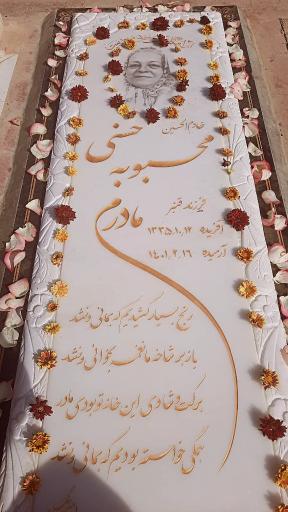 خادم الحسین
محبوبه حسنی
مادرم
فرزند قنبر
آفریده ۱۳۳۵.۱.۱۲
آرمیده ۱۴۰۱.۲.۱۶
رنج بسیار کشیدیم که بمانی و نشد
باز بر شاخه ما نغمه بخوانی و نشد
برکت و شادی این خانه تو بودی مادر
همگی خواسته بودیم که بمانی و نشد